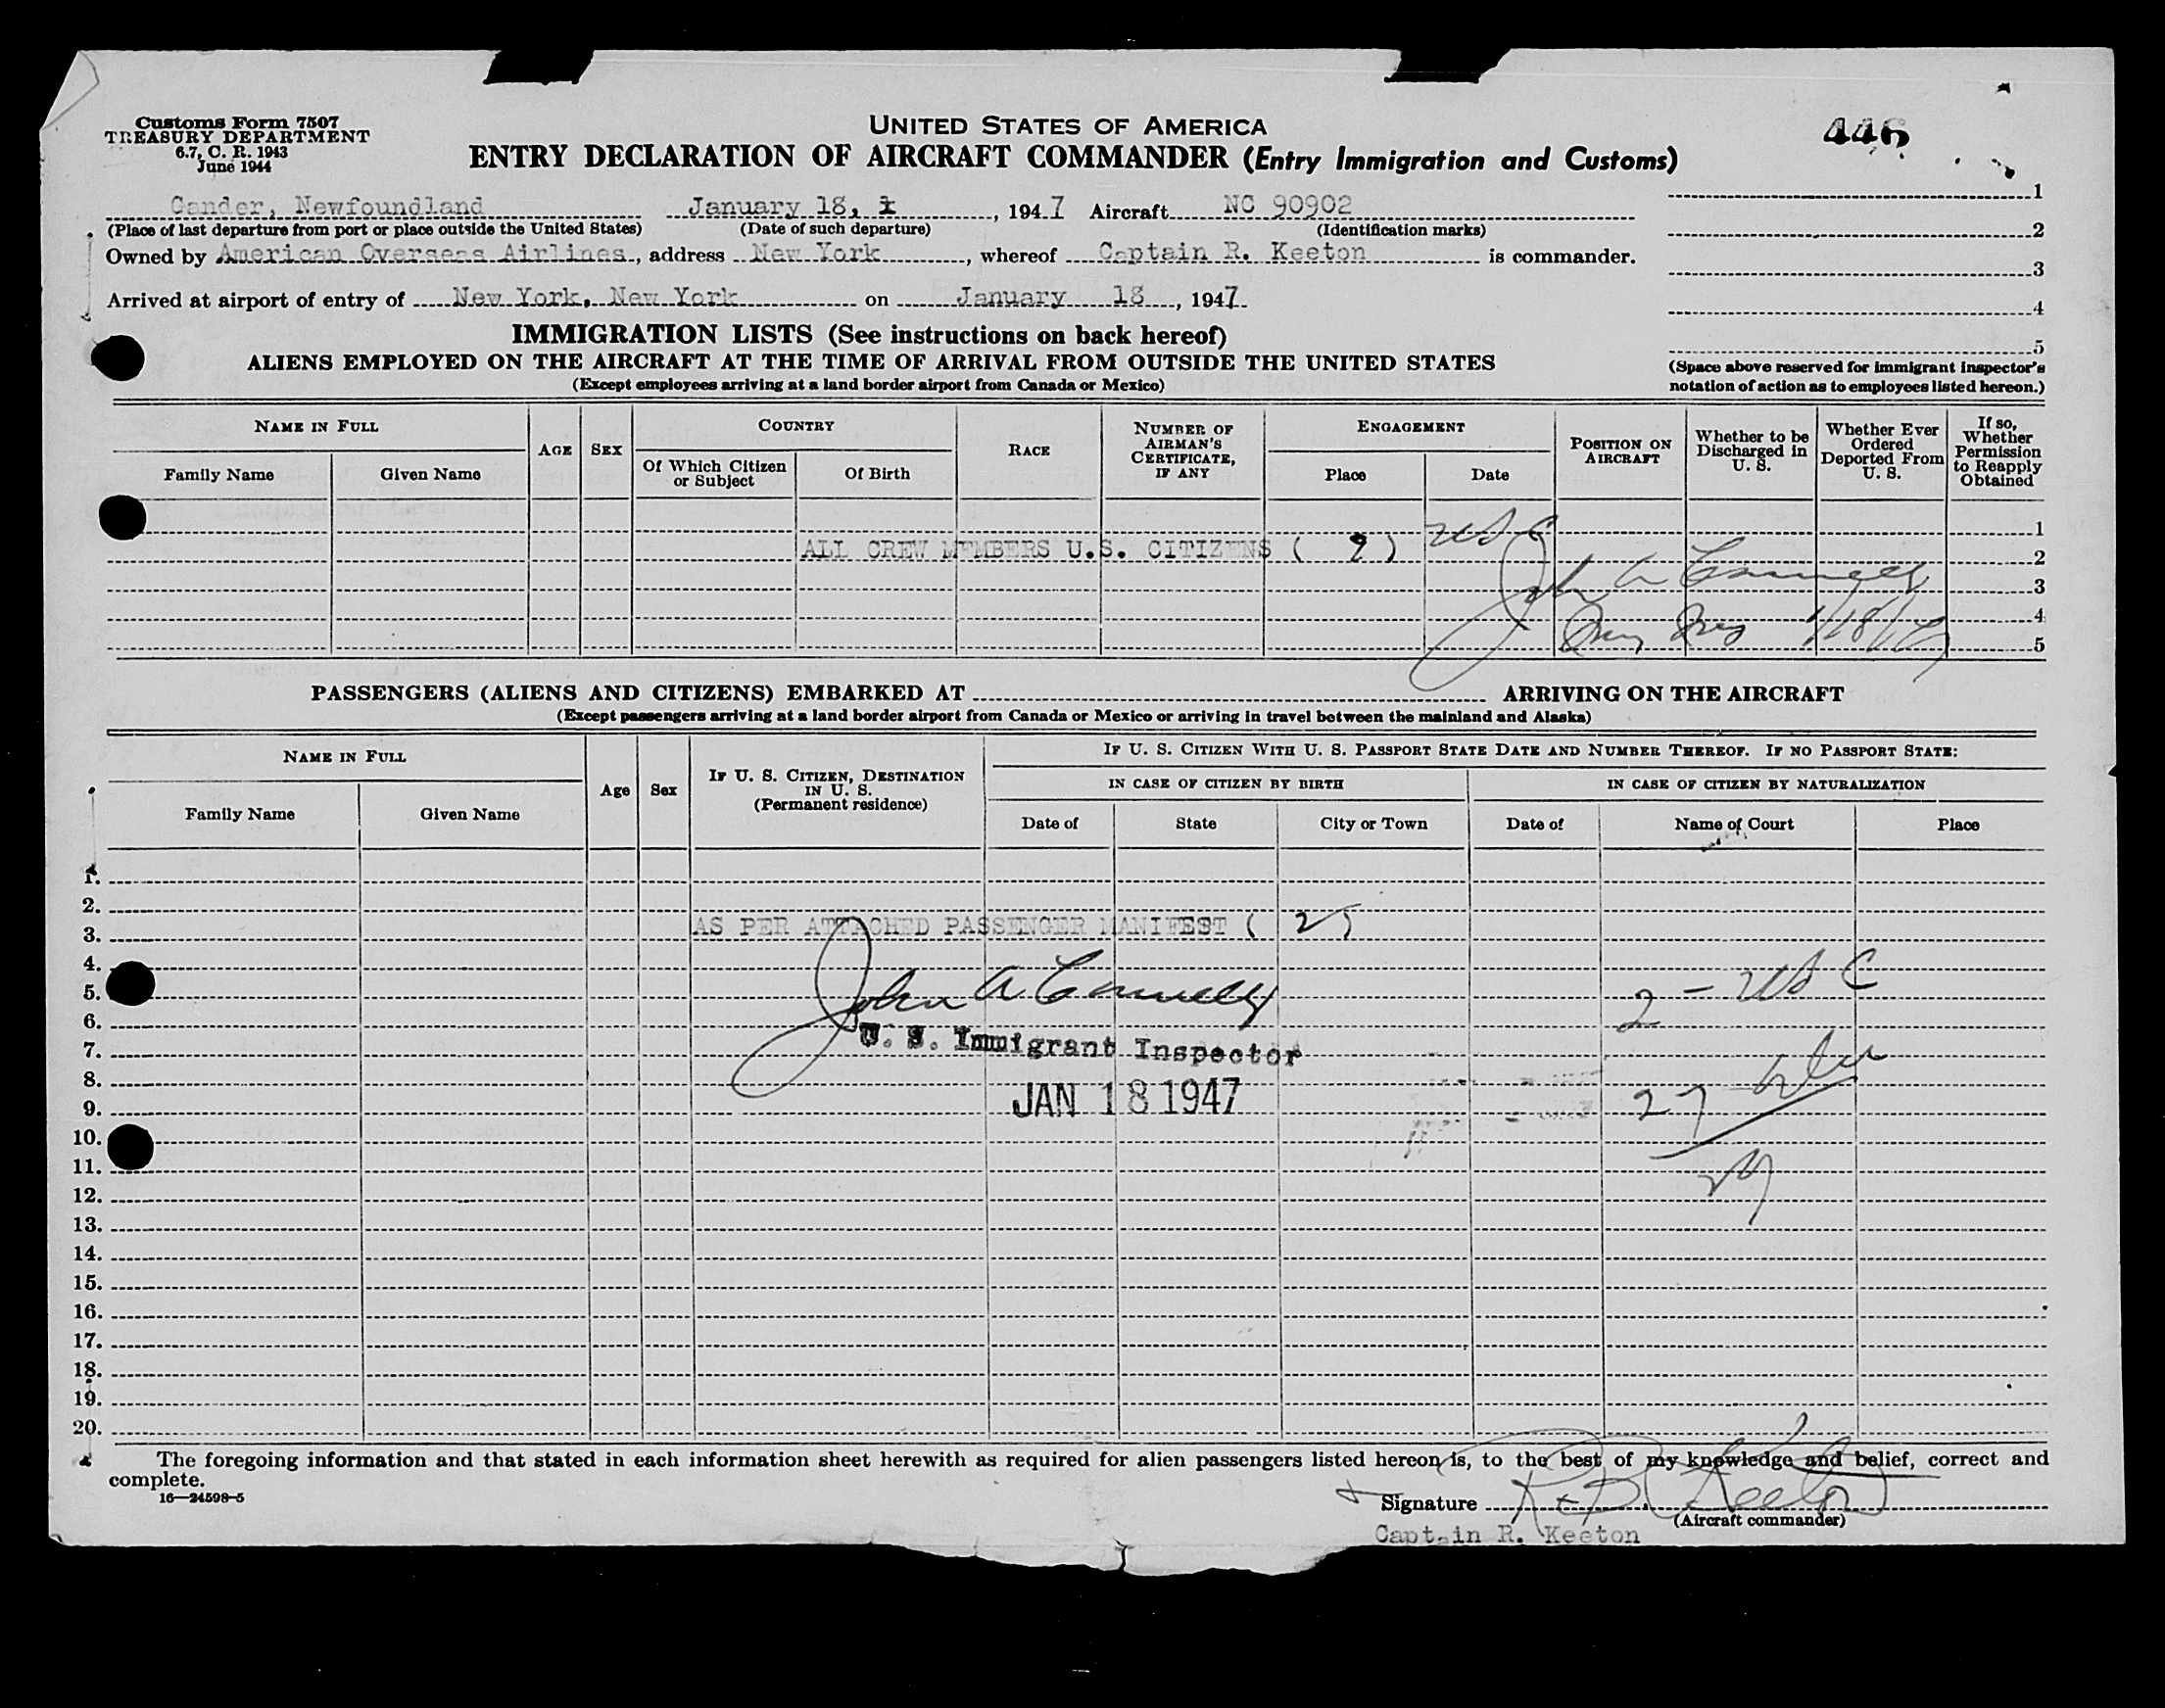 Customs Form 7507
TREASURY DEPARTMENT
6.7, C. R. 1943
June 1944
UNITED STATES OF AMERICA
ENTRY DECLARATION OF AIRCRAFT COMMANDER (Entry Immigration and Customs)
446
Gander, Newfoundland January 18, 1947 Aircraft NC 90902
(Place of last departure from port or place outside the United States) (Date of such departure) (Identification marks)
Owned by American Overseas Airlines, address New York, whereof Captain R. Keeton is commander.
Arrived at airport of entry of New York, New York on January 18, 1947
1
2
3
4
5
(Space above reserved for immigrant inspector's
notation of action as to employees listed hereon.)
IMMIGRATION LISTS (See instructions on back hereof)
ALIENS EMPLOYED ON THE AIRCRAFT AT THE TIME OF ARRIVAL FROM OUTSIDE THE UNITED STATES
(Except employees arriving at a land border airport from Canada or Mexico)
NAME IN FULL
Family Name Given Name
AGE SEX
COUNTRY
Of Which Citizen or Subject Of Birth
RACE
NUMBER OF AIRMAN'S CERTIFICATE, IF ANY
ENGAGEMENT
Place Date
POSITION ON AIRCRAFT
Whether to be Discharged in U. S.
Whether Ever Ordered Deported From U. S.
If so, Whether Permission to Reapply Obtained
1
ALL CREW MEMBERS U.S. CITIZENS ( 9 ) USC 2
John A Connelly 3
1/18/47 4
5
PASSENGERS (ALIENS AND CITIZENS) EMBARKED AT ARRIVING ON THE AIRCRAFT
(Except passengers arriving at a land border airport from Canada or Mexico or arriving in travel between the mainland and Alaska)
NAME IN FULL
Family Name Given Name
Age Sex
IF U. S. CITIZEN, DESTINATION IN U. S. (Permanent residence)
IF U. S. CITIZEN WITH U. S. PASSPORT STATE DATE AND NUMBER THEREOF. IF NO PASSPORT STATE:
IN CASE OF CITIZEN BY BIRTH IN CASE OF CITIZEN BY NATURALIZATION
Date of State City or Town Date of Name of Court Place
1.
2.
3. AS PER ATTACHED PASSENGER MANIFEST ( 2 )
4.
5. John A. Connelly 2 - USC
6.
7. U. S. Immigrant Inspector
8.
9. JAN 18 1947 27
10.
11.
12. 29
13.
14.
15.
16.
17.
18.
19.
20.
The foregoing information and that stated in each information sheet herewith as required for alien passengers listed hereon is, to the best of my knowledge and belief, correct and
complete.
16—24598-5
Signature R. B. Keeton
(Aircraft commander)
Captain R. Keeton